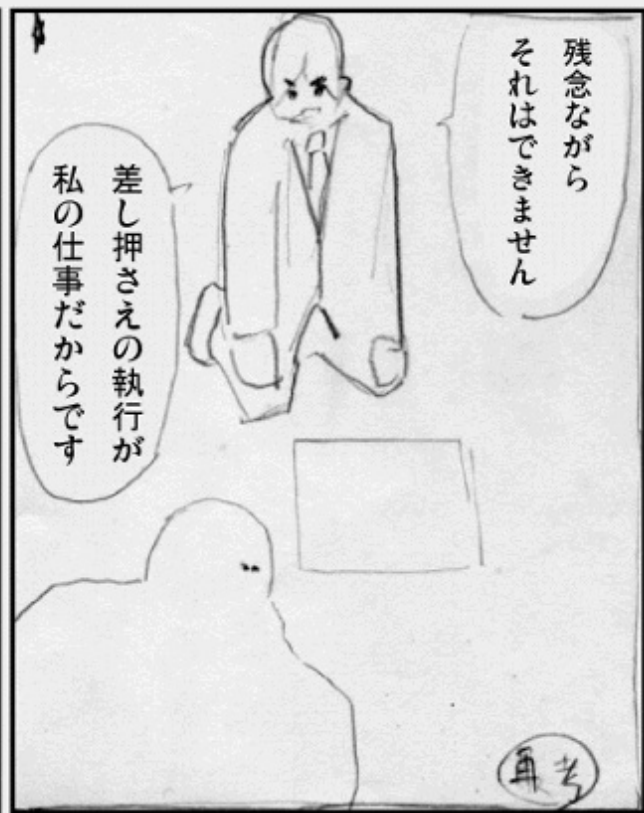 残念ながら
それはできません
差し押さえの執行が
私の仕事だからです
再考